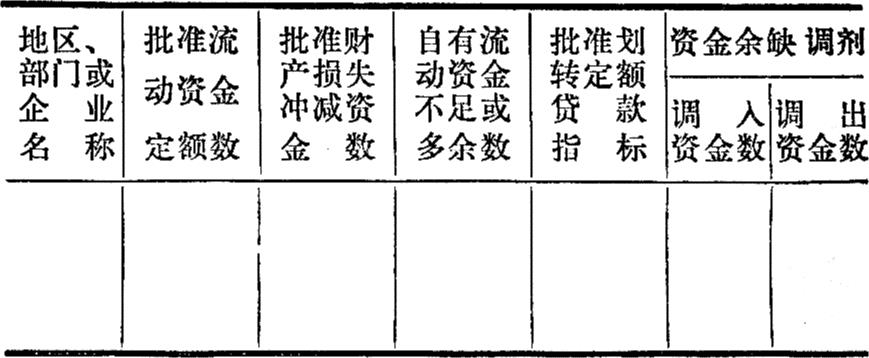 地区、
部门或
企业
名称
批准流
动资金
定额数
批准财
产损失
冲减资
金数
自有流
动资金
不足或
多余数
批准划
转定额
贷款
指标
资金余缺调剂
调入
资金数
调出
资金数